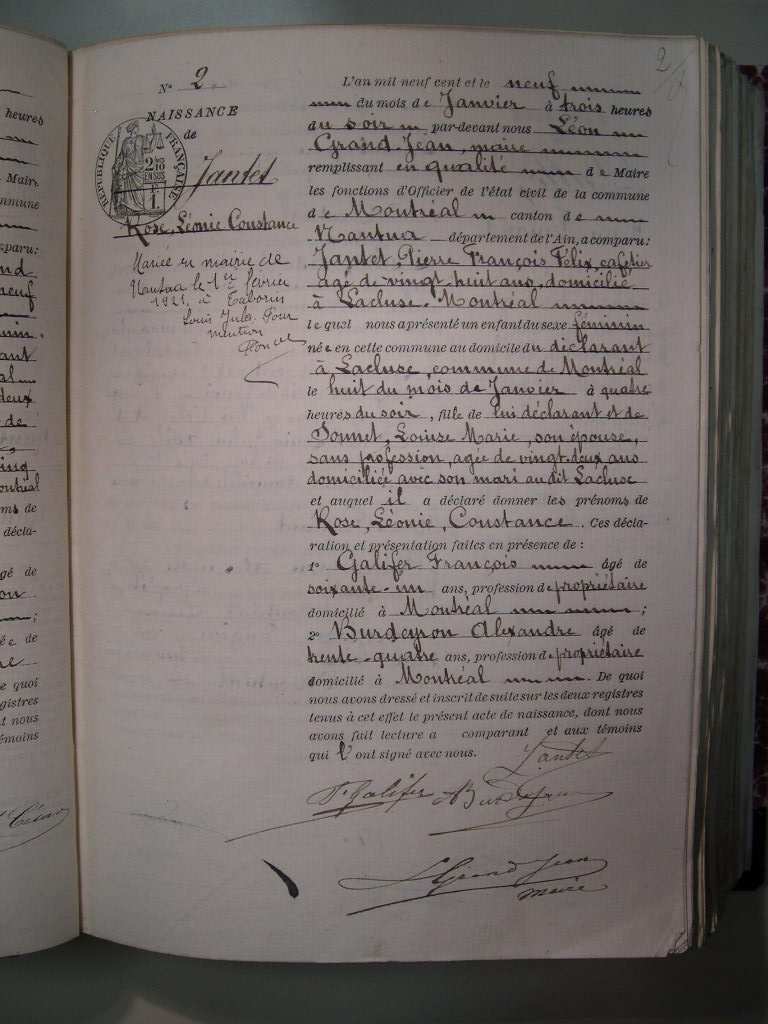 2
N° 2
NAISSANCE
de
RÉPUBLIQUE FRANÇAISE
2/10 EN SUS
1F
Jantet
Rose, Léonie Constance
Mariée en mairie de
Nantua le 1er février
1921, à Taborin
Louis Jules. Pour
mention
L'an mil neuf cent et le neuf
du mois de Janvier à trois heures
du soir par-devant nous Léon
Grand Jean, maire
remplissant en qualité de Maire
les fonctions d'Officier de l'état civil de la commune
de Montréal canton de
Nantua département de l'Ain, a comparu:
Jantet Pierre François Félix, cafetier
agé de vingt-huit ans, domicilié
à Lacluse-Montréal
lequel nous a présenté un enfant du sexe féminin
née en cette commune au domicile du déclarant
à Lacluse, commune de Montréal
le huit du mois de Janvier à quatre
heures du soir, fille de lui déclarant et de
Sonnet, Louise Marie, son épouse,
sans profession, agée de vingt-deux ans
domiciliée avec son mari au dit Lacluse
et auquel il a déclaré donner les prénoms de
Rose, Léonie, Constance. Ces décla-
ration et présentation faites en présence de :
1° Galifer François âgé de
soixante-un ans, profession de propriétaire
domicilié à Montréal ;
2° Burdeyron Alexandre âgé de
trente-quatre ans, profession de propriétaire
domicilié à Montréal. De quoi
nous avons dressé et inscrit de suite sur les deux registres
tenus à cet effet le présent acte de naissance, dont nous
avons fait lecture a comparant et aux témoins
qui l'ont signé avec nous.
Jantet
F. Galifer A Burdeyron
L Grand Jean
maire
heures
Maire
commune
comparu:
neuf
deux
de
Montréal
de
décla-
âgé de
;
de
quoi
registres
nous
témoins